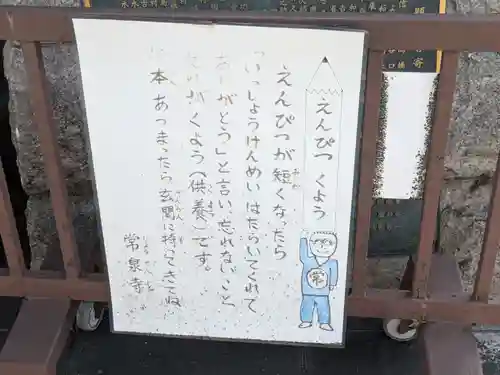 えんぴつ くよう
えんぴつが短くなったら
「いっしょうけんめい はたらいてくれて
ありがとう」と言い、忘れないこと
それが くよう(供養)です。
本 あつまったら玄関に持ってきてね
常泉寺
常